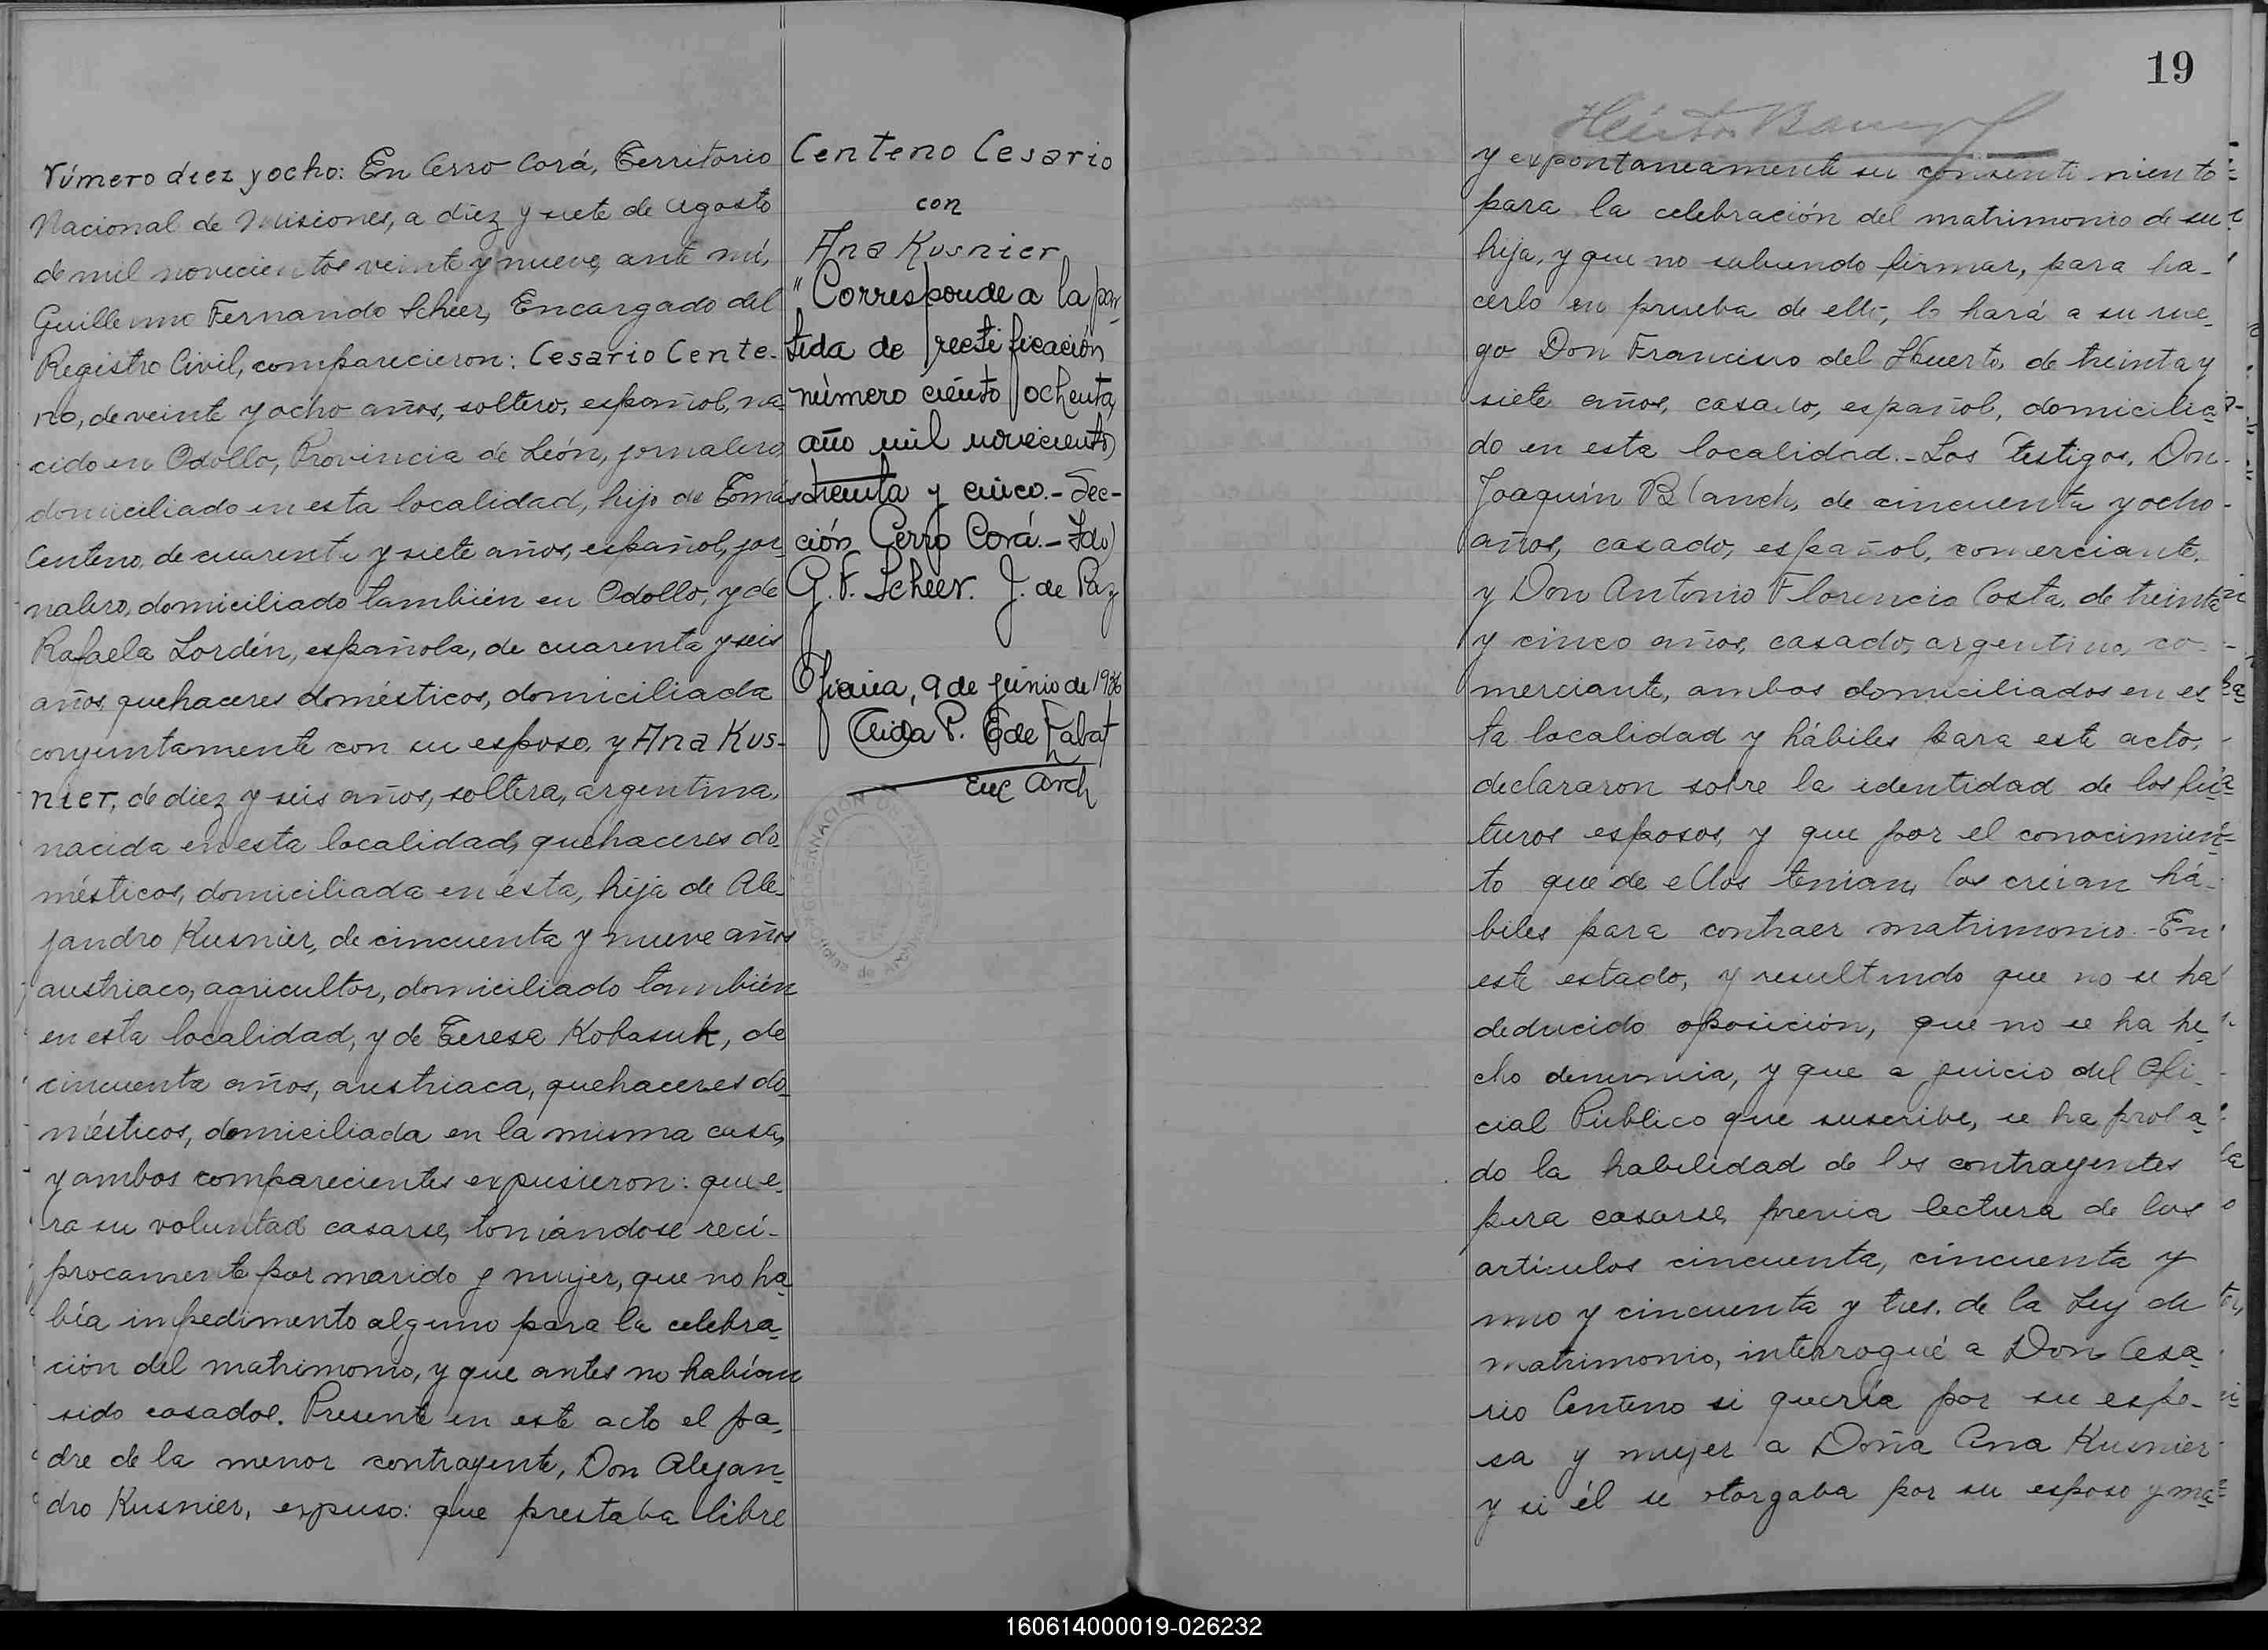 Número diez y ocho: En Cerro Corá, Territorio
Nacional de Misiones, a diez y siete de Agosto
de mil novecientos veinte y nueve, ante mí,
Guillermo Fernando Scheer, Encargado del
Registro Civil, comparecieron: Cesario Cente-
no, de veinte y ocho años, soltero, español, na-
cido en Odollo, Provincia de León, jornalero
domiciliado en esta localidad, hijo de Tomás
Centeno, de cuarenta y siete años, español, jor-
nalero, domiciliado también en Odollo, y de
Rafaela Lordén, española, de cuarenta y seis
años, quehaceres domésticos, domiciliada
conjuntamente con su esposo, y Ana Kus-
nier, de diez y seis años, soltera, argentina,
nacida en esta localidad, quehaceres do-
mésticos, domiciliada en ésta, hija de Ale-
jandro Kusnier, de cincuenta y nueve años
austriaco, agricultor, domiciliado también
en esta localidad, y de Teresa Kobasuk, de
cincuenta años, austriaca, quehaceres do-
mésticos, domiciliada en la misma casa,
y ambos comparecientes expusieron: que e-
ra su voluntad casarse, tomándose recí-
procamente por marido y mujer, que no ha-
bía impedimento alguno para la celebra-
ción del matrimonio, y que antes no habían
sido casados. Presente en este acto el pa-
dre de la menor contrayente, Don Alejan-
dro Kusnier, expuso: que prestaba libre
Centeno Cesario
con
Ana Kusnier
"Corresponde a la par-
tida de rectificación
número ciento ochenta,
año mil novecientos
treinta y cinco.- Sec-
ción Cerro Corá.- Fdo)
G. F. Scheer. J. de Paz
Oficina, 9 de junio de 1936
Aida P. E de Fabat
Enc Arch
19
Héctor
y expontaneamente su consentimiento
para la celebración del matrimonio de su
hija, y que no sabiendo firmar, para ha-
cerlo en prueba de ello, lo hará a su rue-
go Don Francisco del Huerto, de treinta y
siete años, casado, español, domicilia-
do en esta localidad.- Los Testigos, Don
Joaquín Blanch, de cincuenta y ocho
años, casado, español, comerciante,
y Don Antonio Florencio Costa, de treinta
y cinco años, casado, argentino, co-
merciante, ambos domiciliados en es-
ta localidad y hábiles para este acto,
declararon sobre la identidad de los fu-
turos esposos, y que por el conocimien-
to que de ellos tenian, los creian há-
biles para contraer matrimonio.- En
este estado, y resultando que no se ha
deducido oposición, que no se ha he-
cho denuncia, y que a juicio del Ofi-
cial Público que suscribe, se ha proba-
do la habilidad de los contrayentes
para casarse, previa lectura de los
artículos cincuenta, cincuenta y
uno y cincuenta y tres de la Ley de
matrimonio, interrogué a Don Cesa-
rio Centeno si quería por su espo-
sa y mujer a Doña Ana Kusnier
y si él se otorgaba por su esposo y ma-
160614000019-026232